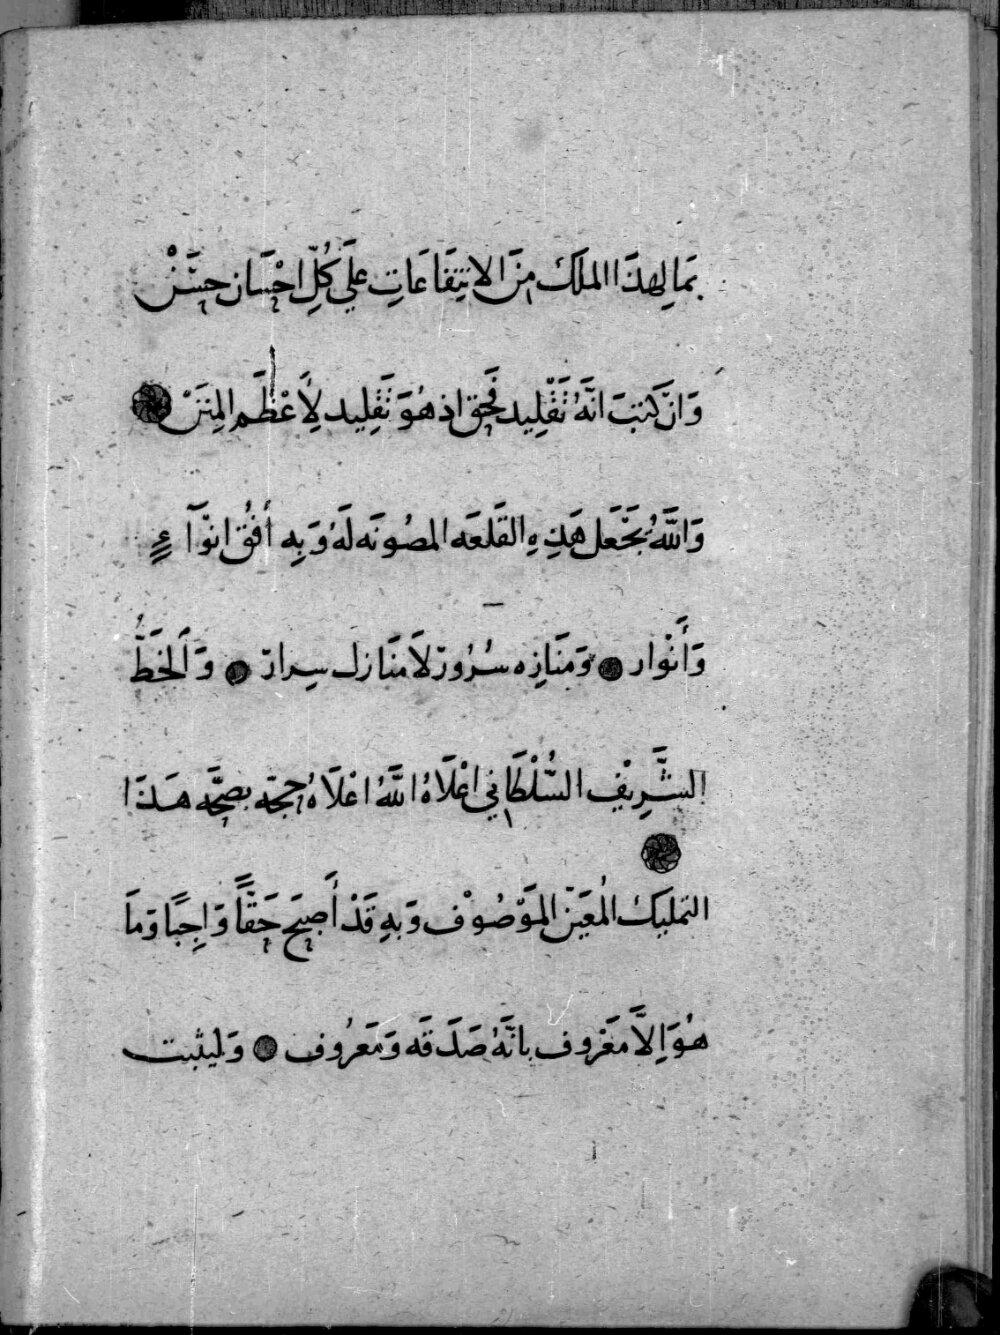 بمَا لِهذَا الملَكْ مِنَ الانتِفَاعَاتِ عَلَى كُلِّ احْسَان حسَنْ
وَانْ كتبَ انَّهُ تَقْلِيد فَحق اذ هُوَ تَقْلِيد لِأَعْظَم المِنَنْ
وَاللَّهُ يَجْعَل هَذِهِ القَلعَه المصُونَه لَهُ وَبِه أُفقُ انْوَآءٍ
وَأَنْوار وَمنَازِه سُرُورْ لَا مَنَازل سِرارْ وَالخَطُّ
الشَّرِيْف السُّلْطَانِي اعْلَاهُ اللَّهُ اعْلَاهُ حجَّه بصِحَّه هَذَا
التمليَك المُعَيَّنْ المَوْصُوْف وَبهِ قَدْ أَصبَح حَقًّا وَاجِبًا وَمَا
هُوَ اِلَّا مَعْرُوف بانَّهُ صَدَقَه وَمَعَرُوف وَليثبت